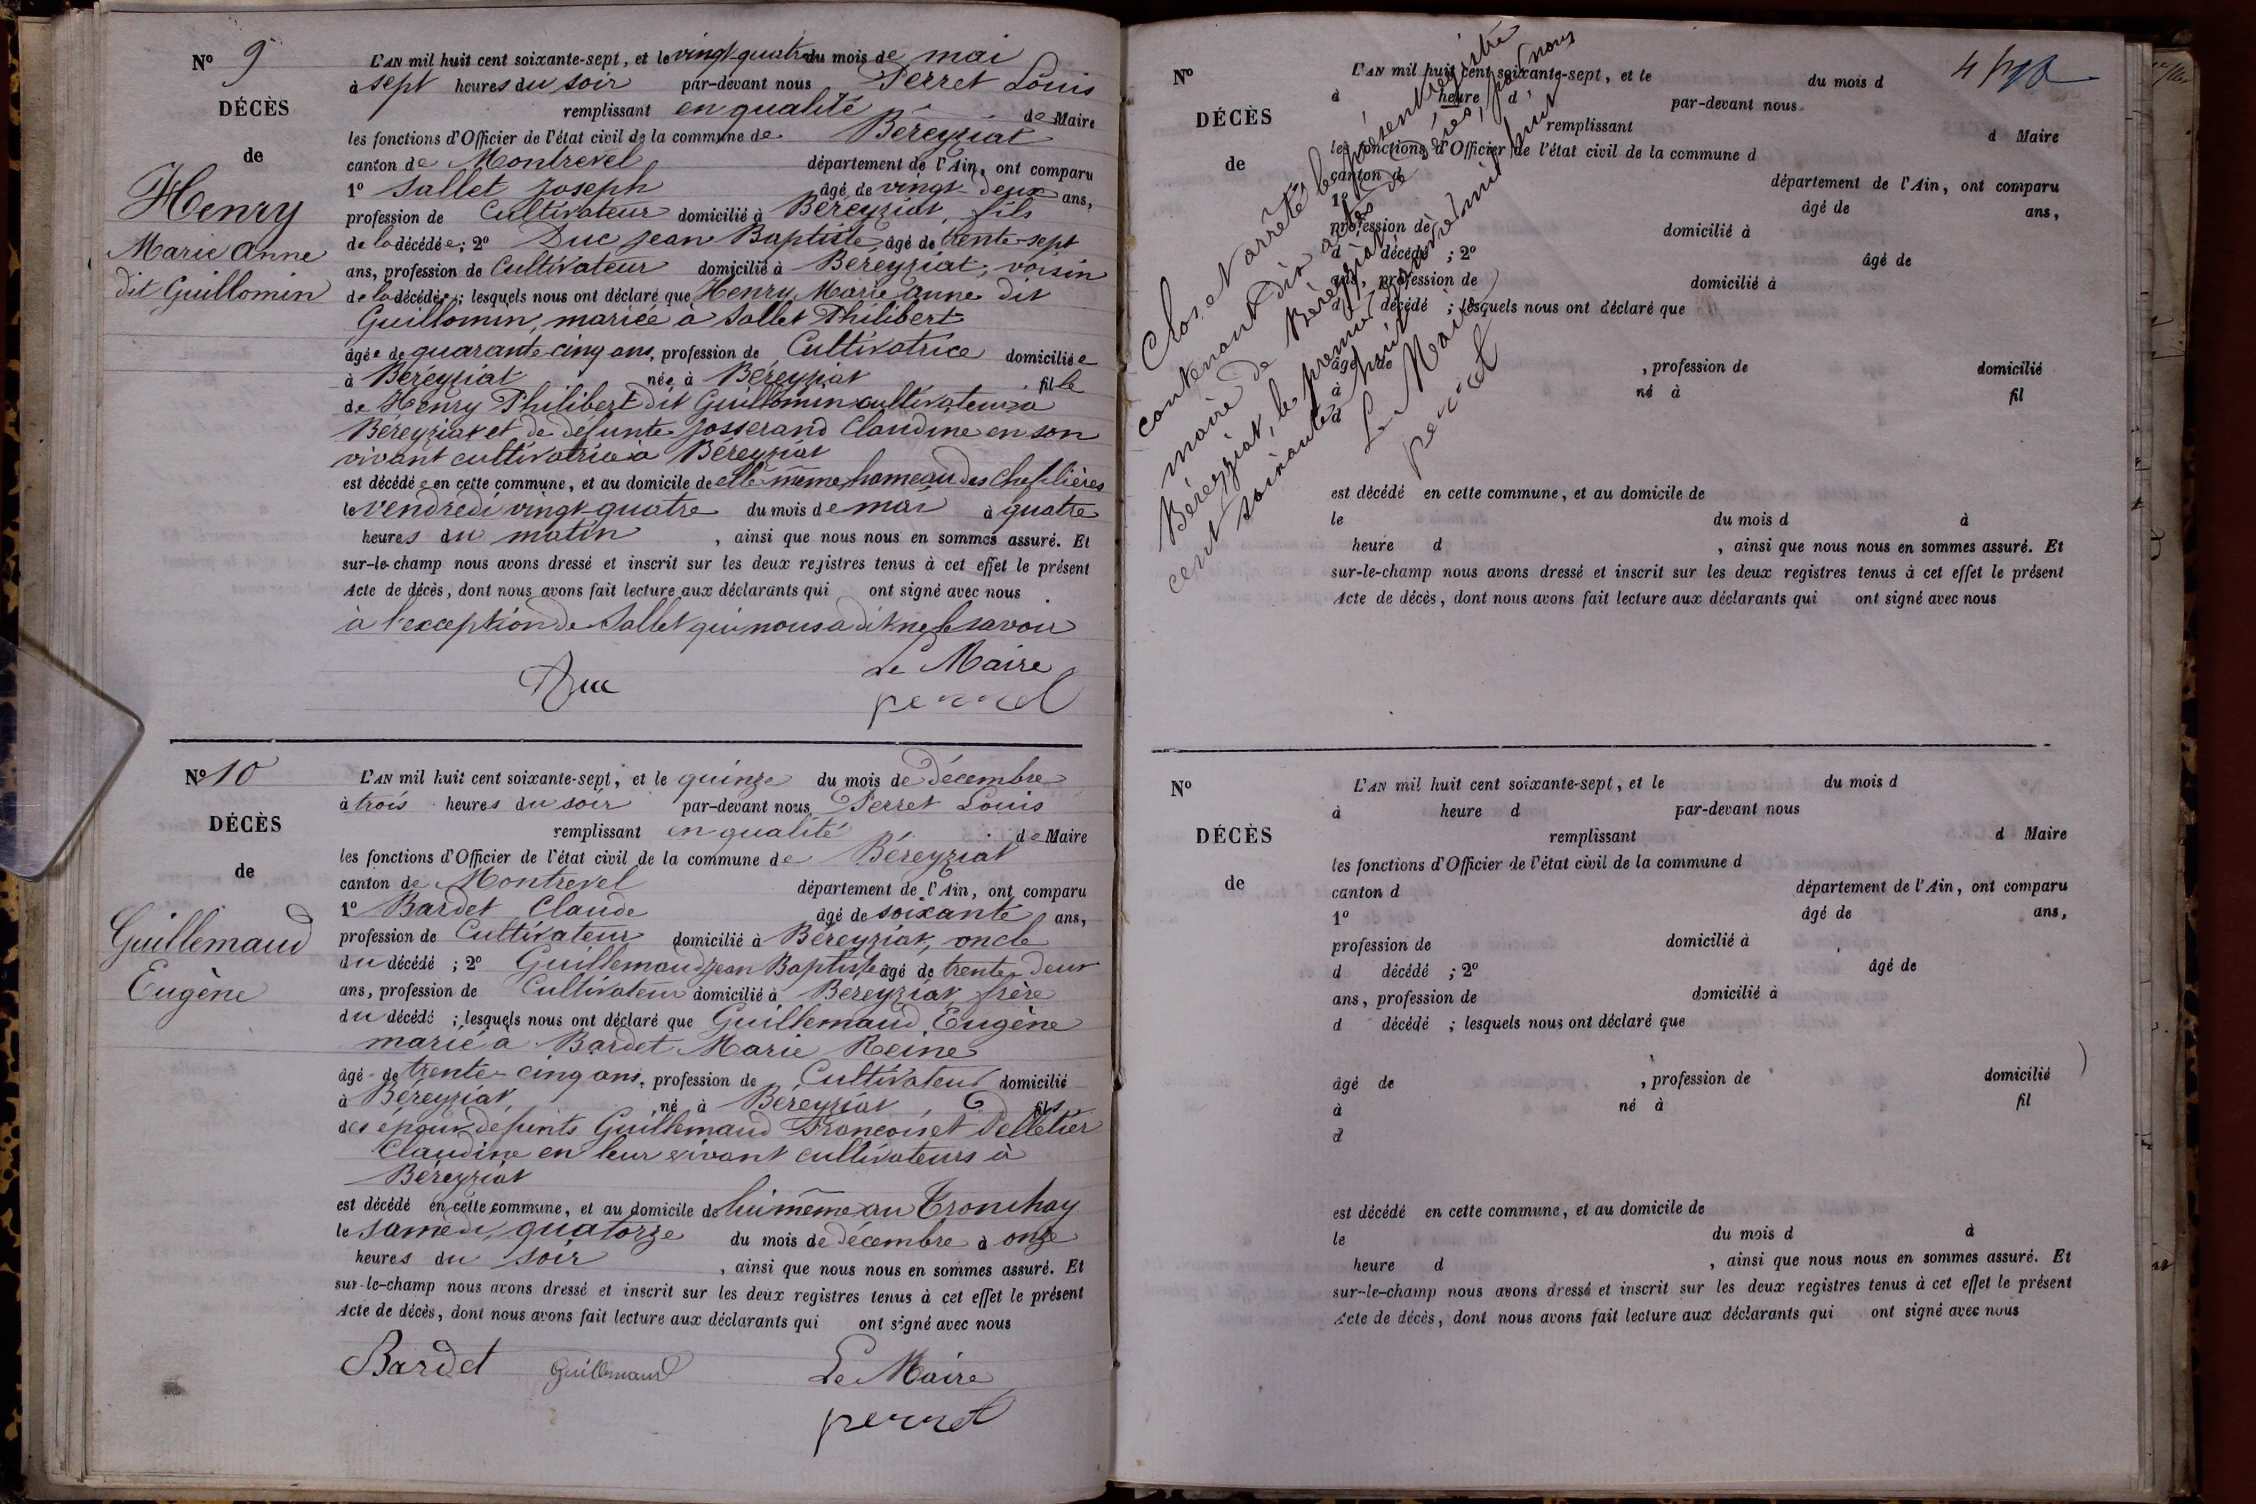 Nº 9
DÉCÈS
de
Henry
Marie Anne
dit Guillomin
L'AN mil huit cent soixante-sept, et le vingt quatre du mois de mai
à sept heures du soir par-devant nous Perret Louis
remplissant en qualité de Maire
les fonctions d'Officier de l'état civil de la commune de Béreyziat
canton de Montrevel département de l'Ain, ont comparu
1º Sallet Joseph âgé de vingt-deux ans,
profession de Cultivateur domicilié à Béreyziat, fils
de la décédée; 2º Duc Jean Baptiste, âgé de trente-sept
ans, profession de Cultivateur domicilié à Béreyziat, voisin
de la décédée; lesquels nous ont déclaré que Henry Marie Anne dit
Guillomin, mariée à Sallet Philibert
âgée de quarante cinq ans, profession de Cultivatrice domiciliée
à Béreyziat née à Béreyziat fille
de Henry Philibert dit Guillomin cultivateur à
Béreyziat et de défunte Josserand Claudine en son
vivant cultivatrice à Béreyziat
est décédée en cette commune, et au domicile de elle même, hameau des
le vendredi vingt quatre du mois de mai à quatre
heures du matin, ainsi que nous nous en sommes assuré. Et
sur-le-champ nous avons dressé et inscrit sur les deux registres tenus à cet effet le présent
Acte de décès, dont nous avons fait lecture aux déclarants qui ont signé avec nous
à l'exception de Sallet qui nous a dit ne le savoir
Le Maire
Duc
perret
Nº 10
DÉCÈS
de
Guillemaud
Eugène
L'AN mil huit cent soixante-sept, et le quinze du mois de Décembre
à trois heures du soir par-devant nous Perret Louis
remplissant en qualité de Maire
les fonctions d'Officier de l'état civil de la commune de Béreyziat
canton de Montrevel département de l'Ain, ont comparu
1º Bardet Claude âgé de soixante ans,
profession de Cultivateur domicilié à Béreyziat, oncle
du décédé ; 2º Guillemaud Jean Baptiste âgé de trente-deux
ans, profession de Cultivateur domicilié à Béreyziat, frère
du décédé ; lesquels nous ont déclaré que Guillemaud Eugène
marié à Bardet Marie Reine
âgé de trente-cinq ans, profession de Cultivateur domicilié
à Béreyziat, né à Béreyziat, fils
des époux défunts Guillemaud François et Pelletier
Claudine en leur vivant cultivateurs à
Béreyziat
est décédé en cette commune, et au domicile de lui même au Tronchay
le samedi quatorze du mois de décembre à onze
heures du soir, ainsi que nous nous en sommes assuré. Et
sur-le-champ nous avons dressé et inscrit sur les deux registres tenus à cet effet le présent
Acte de décès, dont nous avons fait lecture aux déclarants qui ont signé avec nous
Bardet Guillemaud Le Maire
perret
Nº
DÉCÈS
de
L'AN mil huit cent soixante-sept, et le du mois d
à heure d par-devant nous
remplissant d Maire
les fonctions d'Officier de l'état civil de la commune d
canton d département de l'Ain, ont comparu
1º âgé de ans,
profession de domicilié à
d décédé ; 2º âgé de
ans, profession de domicilié à
d décédé ; lesquels nous ont déclaré que
âgé de , profession de domicilié
à né à fil
d
est décédé en cette commune, et au domicile de
le du mois d à
heure d , ainsi que nous nous en sommes assuré. Et
sur-le-champ nous avons dressé et inscrit sur les deux registres tenus à cet effet le présent
Acte de décès, dont nous avons fait lecture aux déclarants qui ont signé avec nous
Clos et arrêté le présent registre
contenant dix actes de décès, par nous
maire de Béreyziat
Béreyziat, le premier janvier mil huit
cent soixante huit
Le Maire
perret
Nº
DÉCÈS
de
L'AN mil huit cent soixante-sept, et le du mois d
à heure d par-devant nous
remplissant d Maire
les fonctions d'Officier de l'état civil de la commune d
canton d département de l'Ain, ont comparu
1º âgé de ans,
profession de domicilié à
d décédé ; 2º âgé de
ans, profession de domicilié à
d décédé ; lesquels nous ont déclaré que
âgé de , profession de domicilié
à né à fil
d
est décédé en cette commune, et au domicile de
le du mois d à
heure d , ainsi que nous nous en sommes assuré. Et
sur-le-champ nous avons dressé et inscrit sur les deux registres tenus à cet effet le présent
Acte de décès, dont nous avons fait lecture aux déclarants qui ont signé avec nous